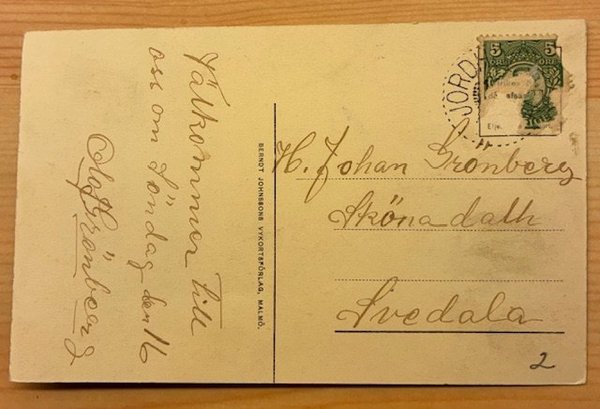 Välkommen till
oss om Söndag den 16
Olof Grönberg
BERNDT JOHNSSONS VYKORTSFÖRLAG, MALMÖ.
5 5
ÖRE ÖRE
JORD
H. Johan Grönberg
Sköna dalh
Svedala
2